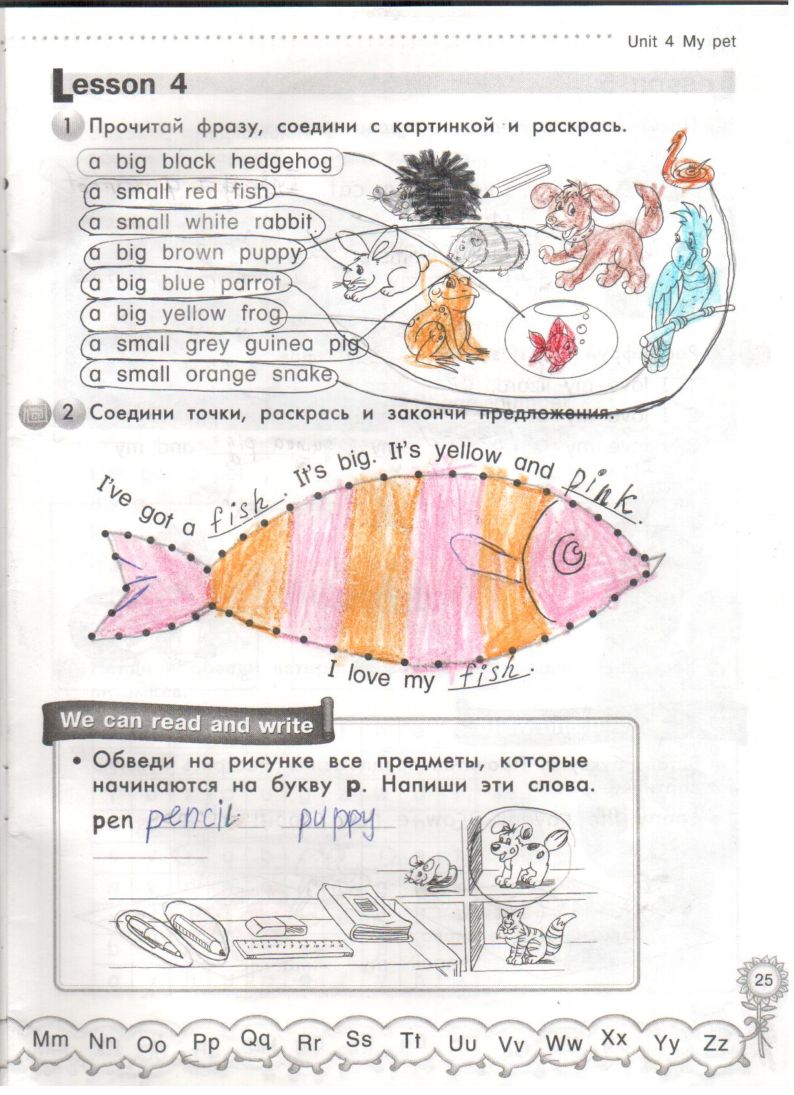 Unit 4 My pet
Lesson 4
1 Прочитай фразу, соедини с картинкой и раскрась.
a big black hedgehog
a small red fish
a small white rabbit
a big brown puppy
a big blue parrot
a big yellow frog
a small grey guinea pig
a small orange snake
2 Соедини точки, раскрась и закончи предложения.
I've got a fish. It's big. It's yellow and pink.
I love my fish.
We can read and write
• Обведи на рисунке все предметы, которые
начинаются на букву p. Напиши эти слова.
pen pencil puppy
25
Mm Nn Oo Pp Qq Rr Ss Tt Uu Vv Ww Xx Yy Zz